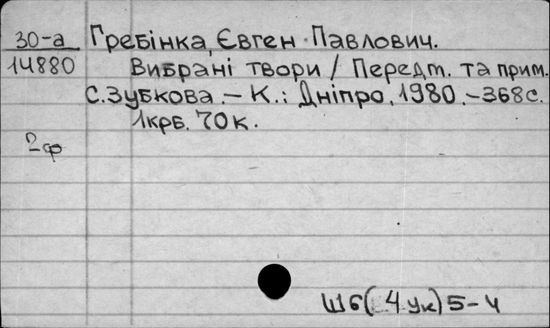 30-а Гребінка, Євген Павлович.
14880 Вибрані твори / Передм. та прим.
С. Зубкова. – К.: Дніпро, 1980. – 368с.
1крб. 70к.
2ф
Ш6(4ук)5-4